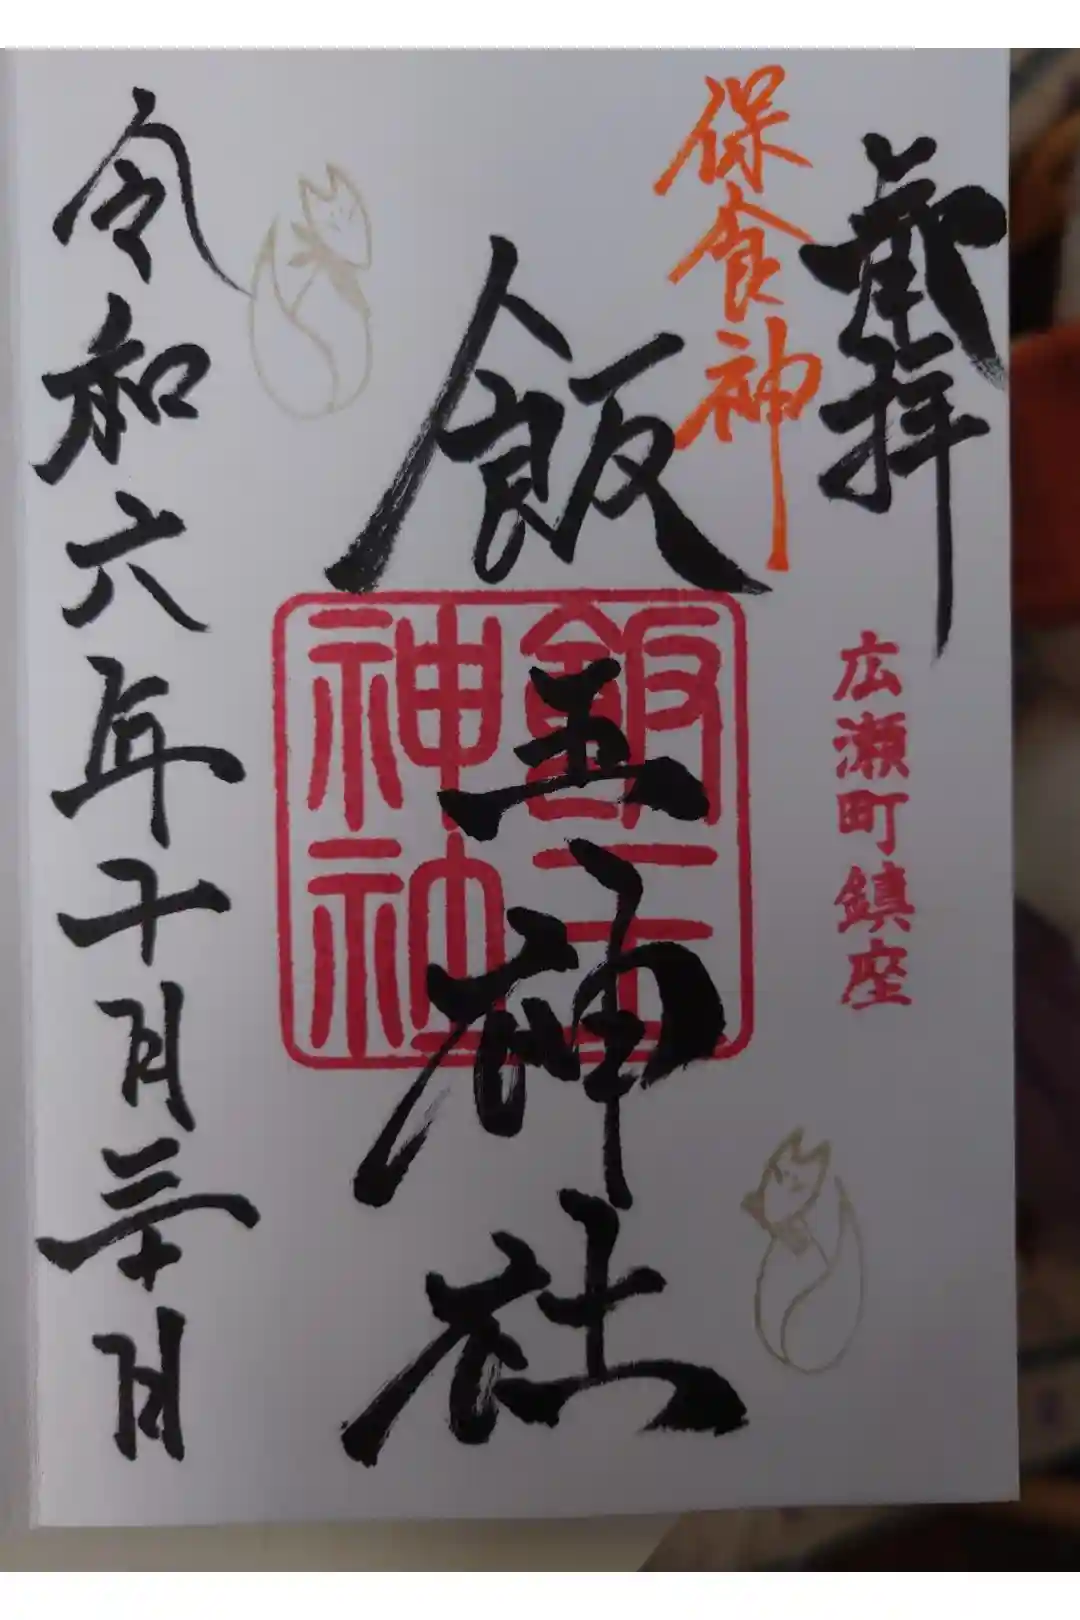 拝
広瀬町鎮座
保食神
飯玉神社
飯玉神社
令和六年十月三十日